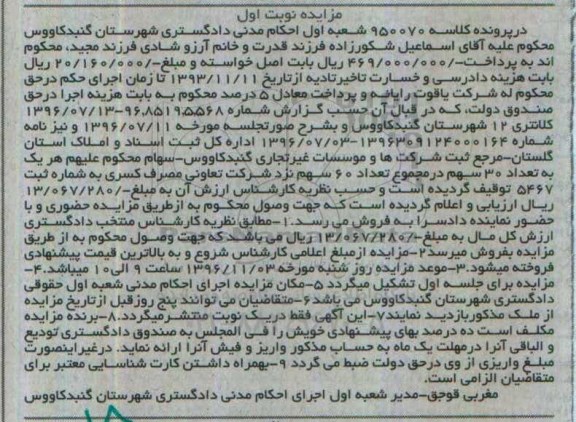 مزایده نوبت اول
درپرونده کلاسه ۹۵۰۰۷۰ شعبه اول احکام مدنی دادگستری شهرستان گنبدکاووس
محکوم علیه آقای اسماعیل شکورزاده فرزند قدرت و خانم آرزو شادی فرزند مجید، محکوم
اند به پرداخت-/۴۶۹/۰۰۰/۰۰۰ ریال بابت اصل خواسته و مبلغ-/۲۰/۱۶۰/۰۰۰ ریال
بابت هزینه دادرسی و خسارت تاخیرتادیه ازتاریخ ۱۳۹۳/۱۱/۱۱ تا زمان اجرای حکم درحق
محکوم له شرکت یاقوت رایانه و پرداخت معادل ۵ درصد محکوم به بابت هزینه اجرا درحق
صندوق دولت، که در قبال آن حسب گزارش شماره ۹۶،۸۵۱۹،۵۵۶۸-۱۳۹۶/۰۷/۱۳
کلانتری ۱۲ شهرستان گنبدکاووس و بشرح صورتجلسه مورخه ۱۳۹۶/۰۷/۱۱ و نیز نامه
شماره ۱۳۹۶۳۰۹۱۲۴۰۰۰۱۶۴-۱۳۹۶/۰۷/۰۳ اداره کل ثبت اسناد و املاک استان
گلستان-مرجع ثبت شرکت ها و موسسات غیرتجاری گنبدکاووس-سهام محکوم علیهم هر یک
به تعداد ۳۰ سهم درمجموع تعداد ۶۰ سهم نزد شرکت تعاونی مصرف کسری به شماره ثبت
۵۴۶۷ توقیف گردیده است و حسب نظریه کارشناس ارزش آن به مبلغ-/۱۳/۰۶۷/۲۸۰
ریال ارزیابی و اعلام گردیده است که جهت وصول محکوم به ازطریق مزایده حضوری و با
حضور نماینده دادسرا به فروش می رسد.۱-مطابق نظریه کارشناس منتخب دادگستری
ارزش کل مال به مبلغ-/۱۳/۰۶۷/۲۸۰ ریال می باشد که جهت وصول محکوم به از طریق
مزایده بفروش میرسد۲-مزایده ازمبلغ اعلامی کارشناس شروع و به بالاترین قیمت پیشنهادی
فروخته میشود.۳-موعد مزایده روز شنبه مورخه ۱۳۹۶/۱۱/۰۳ ساعت ۹ الی۱۰ میباشد.۴-
مزایده برای جلسه اول تشکیل میگردد ۵-مکان مزایده اجرای احکام مدنی شعبه اول حقوقی
دادگستری شهرستان گنبدکاووس می باشد۶-متقاضیان می توانند پنج روزقبل ازتاریخ مزایده
از ملک مذکوربازدید نمایند۷-این آگهی فقط دریک نوبت منتشرمیگردد.۸-برنده مزایده
مکلف است ده درصد بهای پیشنهادی خویش را فی المجلس به صندوق دادگستری تودیع
و الباقی آنرا درمهلت یک ماه به حساب مذکور واریز و فیش آنرا ارائه نماید. درغیراینصورت
مبلغ واریزی از وی درحق دولت ضبط می گردد ۹-بهمراه داشتن کارت شناسایی معتبر برای
متقاضیان الزامی است.
مغربی قوجق-مدیر شعبه اول اجرای احکام مدنی دادگستری شهرستان گنبدکاووس